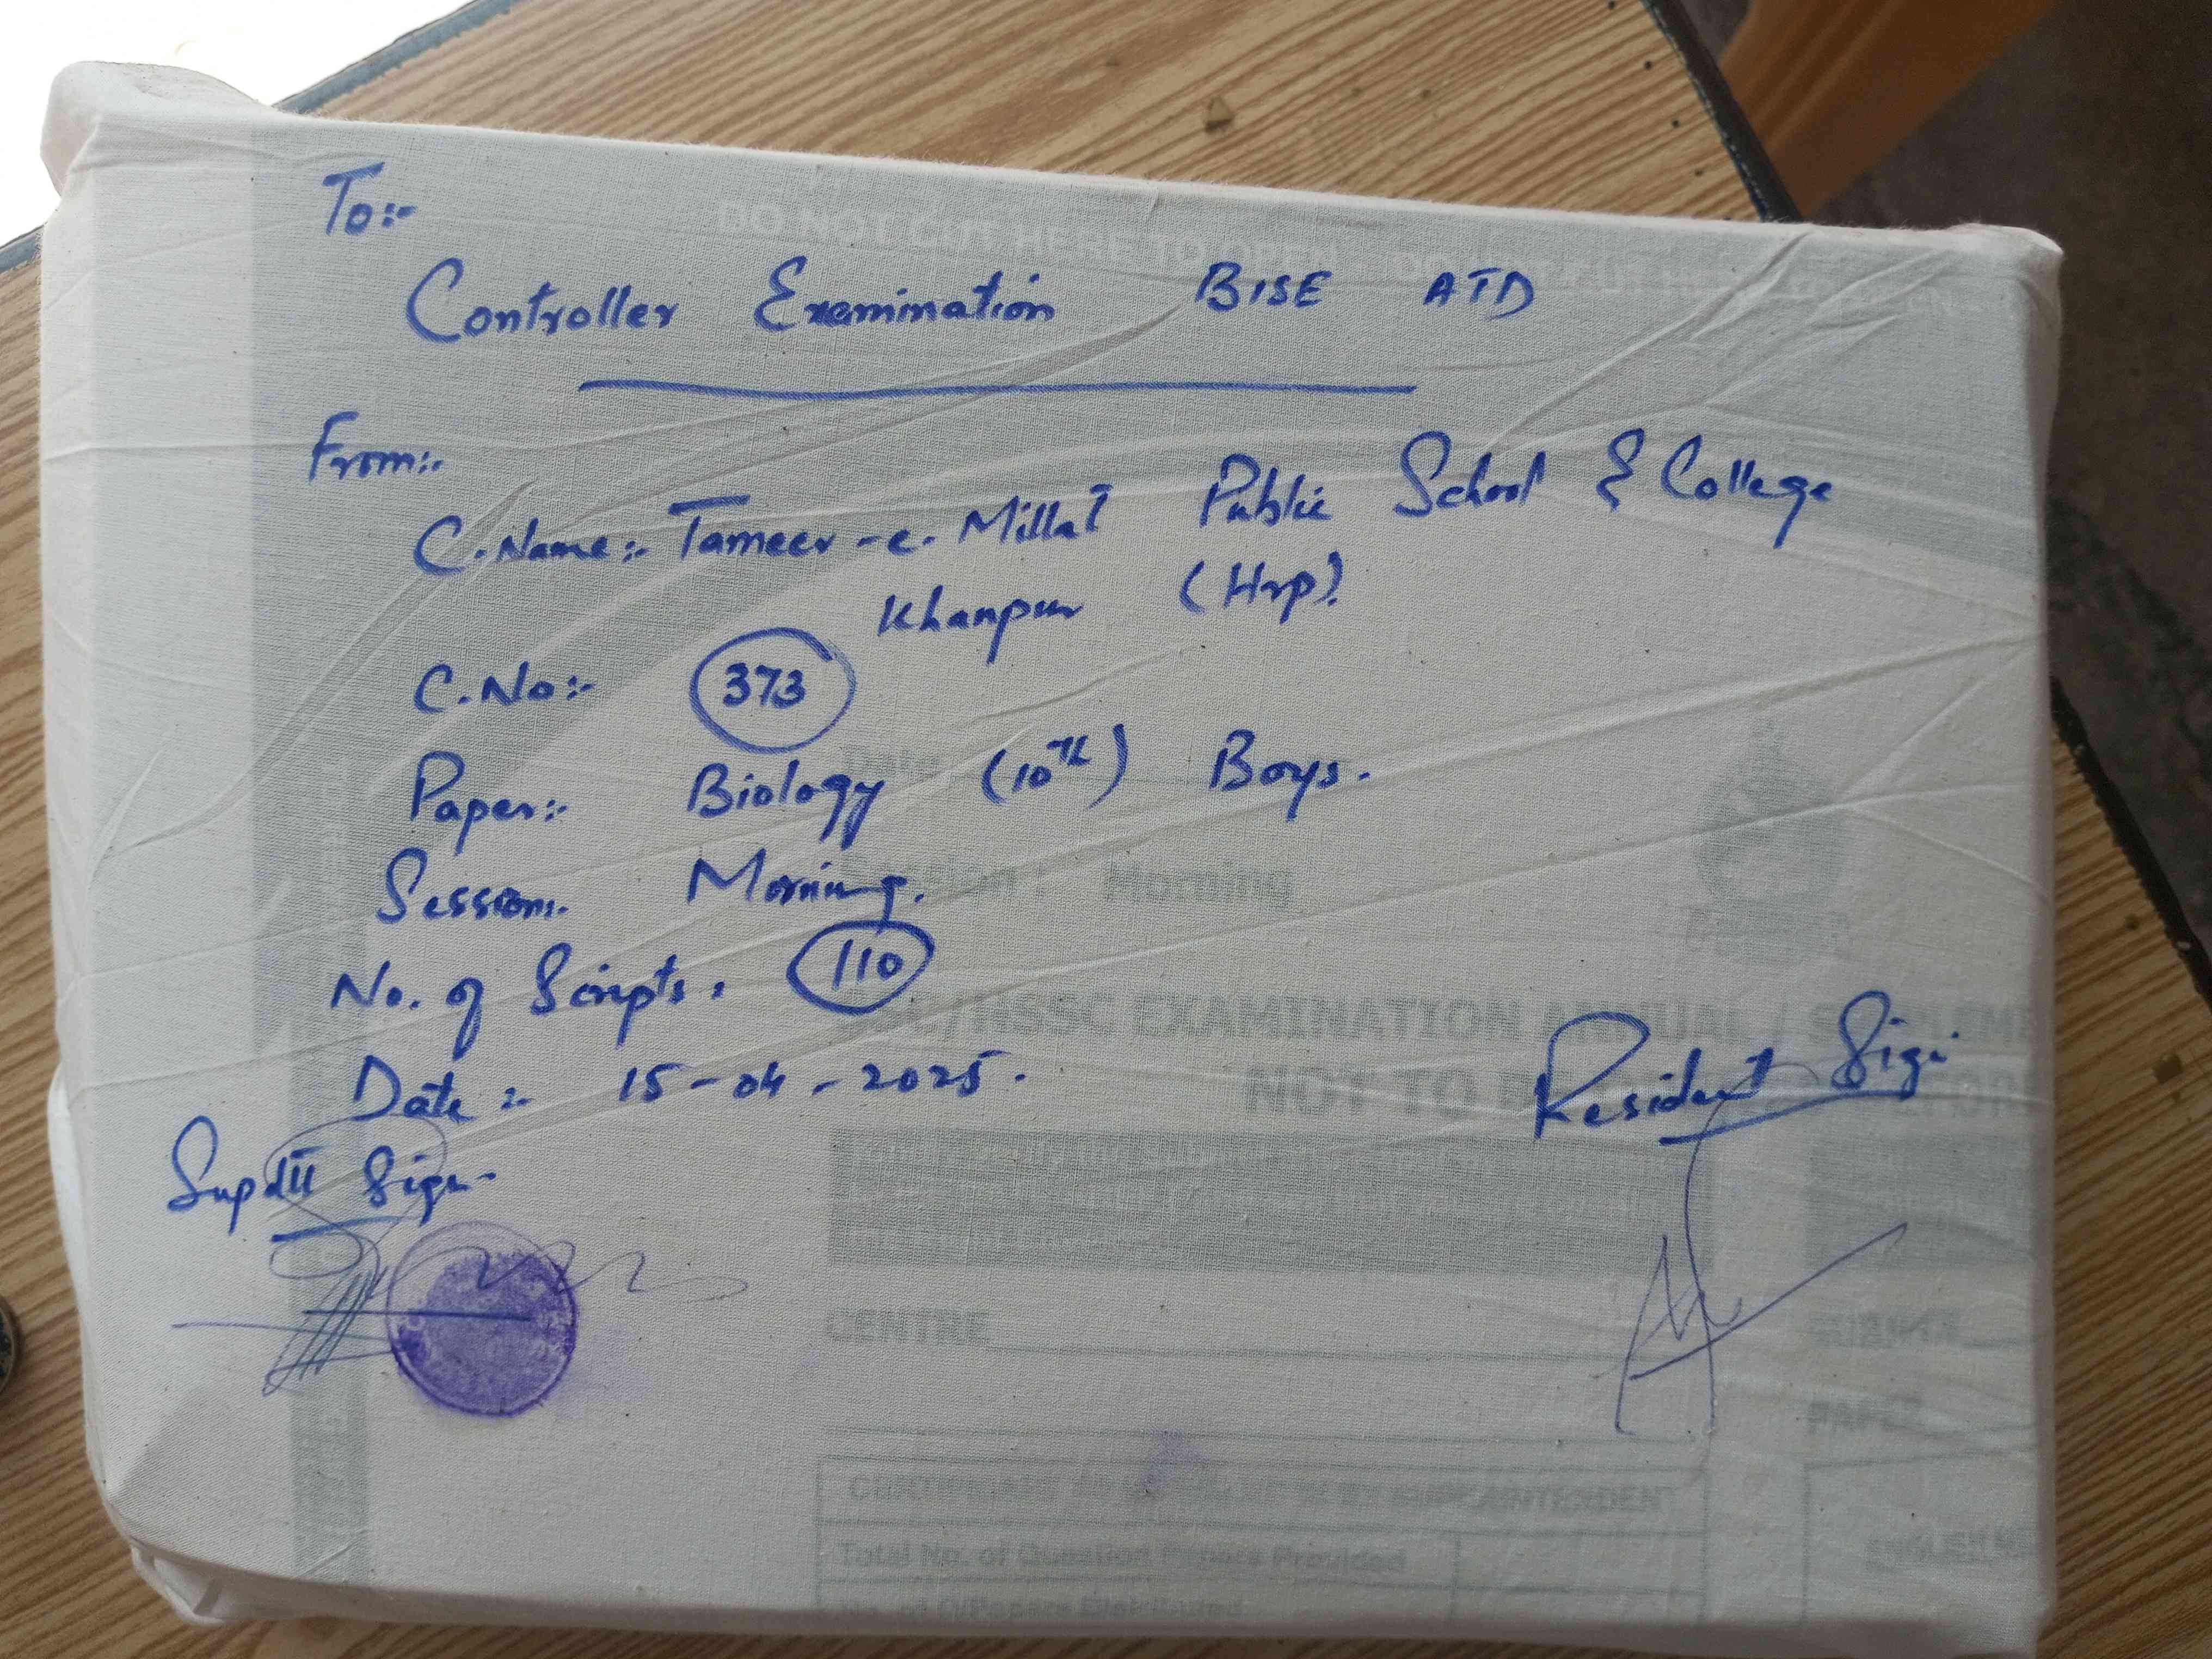 To:-
Controller Examination BISE ATD
From:-
C.Name:- Tameer-e-Millat Public School & College
Khanpur (Hrp).
C.No:- 373
Paper:- Biology (10th) Boys.
Session. Morning.
No. of Scripts. 110
Date:- 15-04-2025.
Resident Sign.
Supdtt Sign.
DO NOT CUT HERE TO OPEN
Session : Morning
SSC/HSSC EXAMINATION ANNUAL /
NOT TO
CENTRE
PAPER
Total No. of Question Papers Provided